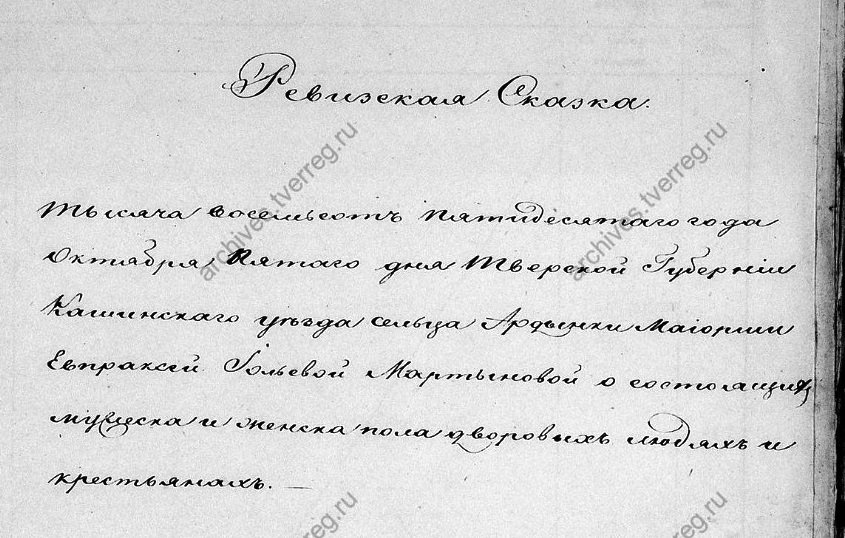 Ревизская Сказка.
тысяча восемьсотъ пятидесятаго года
Октября пятаго дня Тверской Губерніи
Кашинскаго уѣзда сельца Ардынки Маіорши
Евпраксеи Мартыновой о состоящихъ
мужеска и женска пола дворовыхъ людяхъ и
крестьянахъ. —
archives.tverreg.ru
archives.tverreg.ru
reg.ru
reg.ru